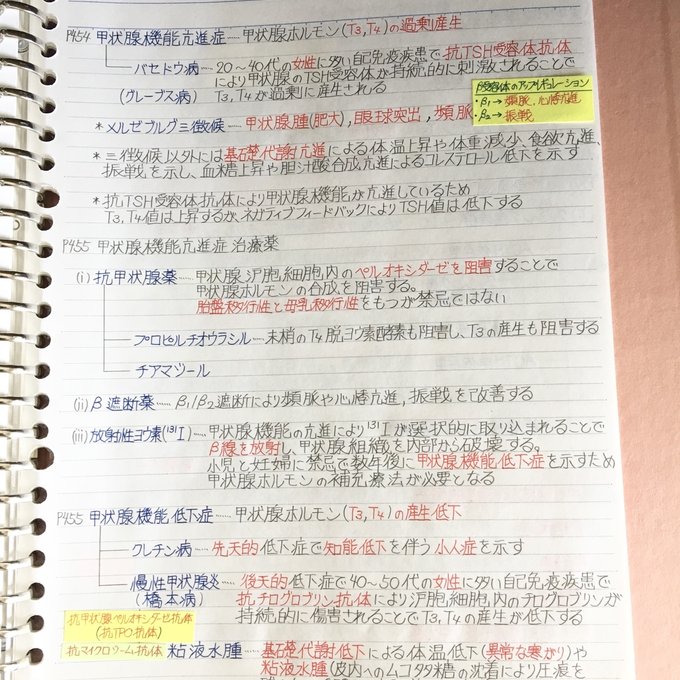 P454 甲状腺機能亢進症……甲状腺ホルモン(T3,T4)の過剰産生
バセドウ病……20〜40代の女性に多い自己免疫疾患で抗TSH受容体抗体
(グレーブス病) により甲状腺のTSH受容体が持続的に刺激されることで
T3,T4が過剰に産生される
β受容体のアップレギュレーション
・β1→頻脈,心悸亢進
・β2→振戦
*メルゼブルグ三徴候……甲状腺腫(肥大),眼球突出,頻脈
*三徴候以外には基礎代謝亢進による体温上昇や体重減少、食欲亢進、
振戦を示し、血糖上昇や胆汁酸合成亢進によるコレステロール低下を示す
*抗TSH受容体抗体により甲状腺機能が亢進しているため
T3,T4値は上昇するが、ネガティブフィードバックによりTSH値は低下する
P455 甲状腺機能亢進症治療薬
(i) 抗甲状腺薬……甲状腺沪胞細胞内のペルオキシダーゼを阻害することで
甲状腺ホルモンの合成を阻害する。
胎盤移行性と母乳移行性をもつが禁忌ではない
プロピルチオウラシル……末梢のT4脱ヨウ素酵素も阻害し、T3の産生も阻害する
チアマゾール
(ii) β遮断薬……β1/β2遮断により頻脈や心悸亢進,振戦を改善する
(iii) 放射性ヨウ素(131I)……甲状腺機能の亢進により131Iが選択的に取り込まれることで
β線を放射し、甲状腺組織を内部から破壊する。
小児と妊婦に禁忌で数年後に甲状腺機能低下症を示すため
甲状腺ホルモンの補充療法が必要となる
P455 甲状腺機能低下症……甲状腺ホルモン(T3,T4)の産生低下
クレチン病……先天的低下症で知能低下を伴う小人症を示す
慢性甲状腺炎……後天的低下症で40〜50代の女性に多い自己免疫疾患で
(橋本病) 抗チログロブリン抗体により沪胞細胞内のチログロブリンが
持続的に傷害されることで、T3,T4の産生が低下する
抗甲状腺ペルオキシダーゼ抗体
(抗TPO抗体)
抗マイクロゾーム抗体
粘液水腫……基礎代謝低下による体温低下(異常な寒がり)や
粘液水腫(皮内へのムコ多糖の沈着により圧痕を